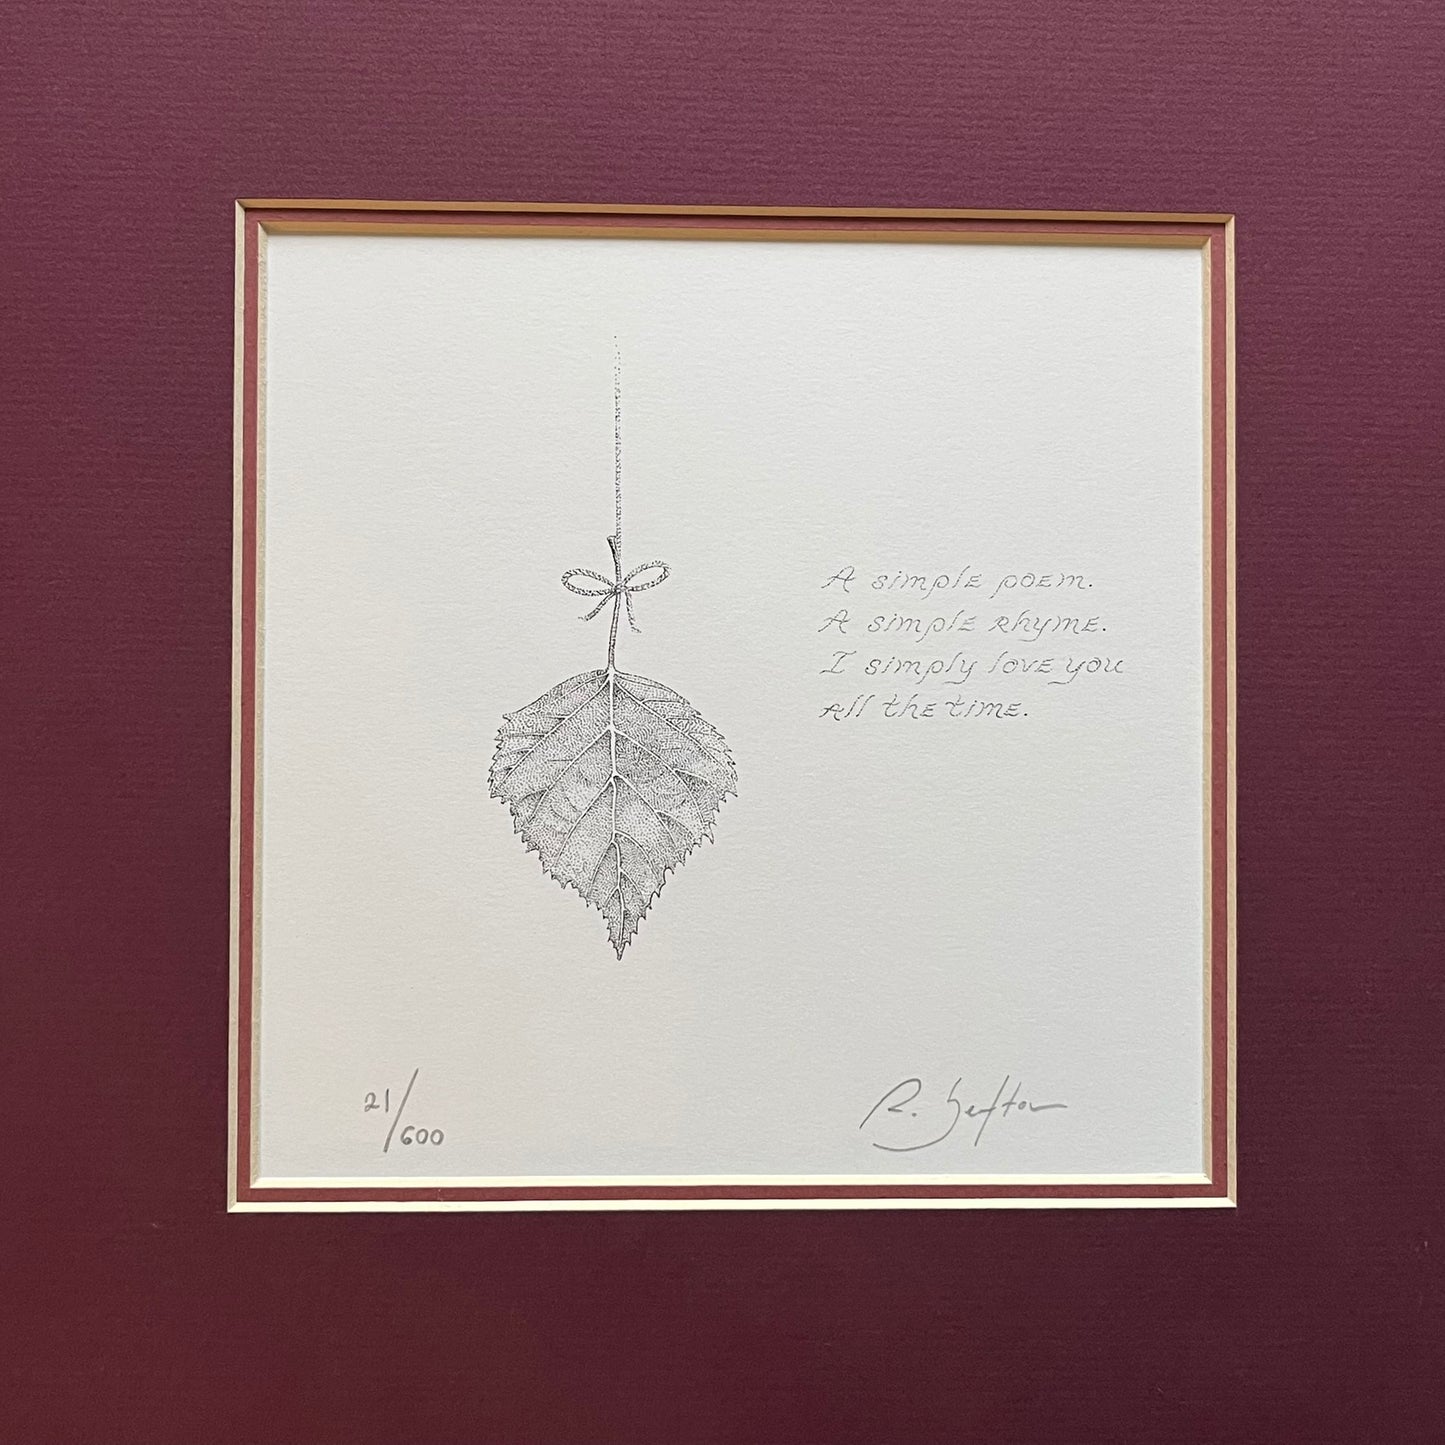 A simple poem.
A simple rhyme.
I simply love you
All the time.
21/600
R. Sexton